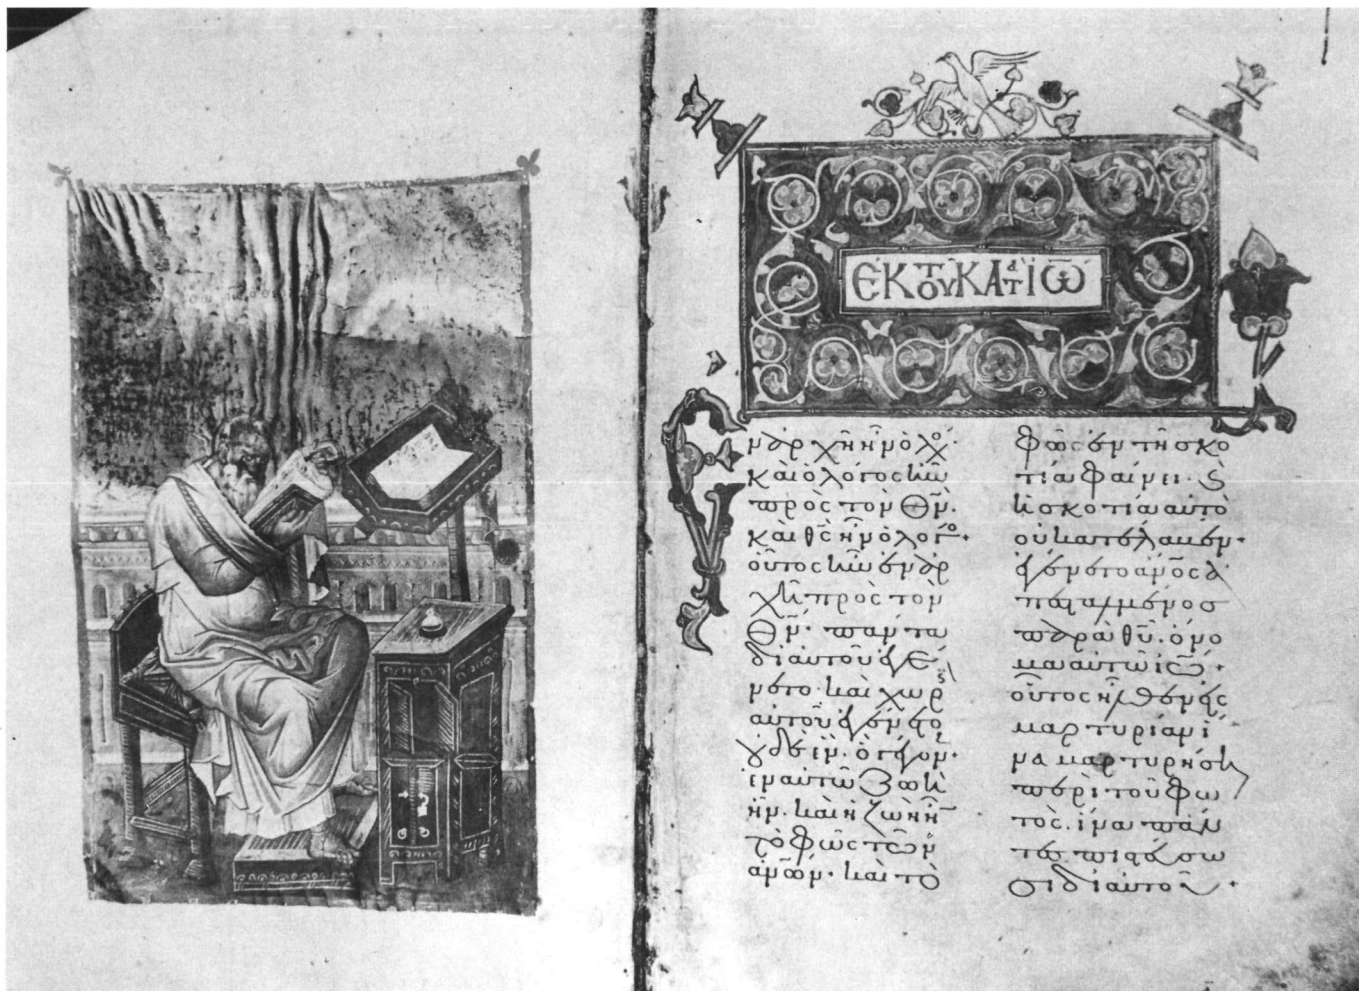 ἘΚ ΤΟΥ ΚΑΤ ἸΩ̅
Ἐν ἀρχῆ ἦν ὁ λόγο·
καὶ ὁ λόγος ἦν
πρὸς τὸν Θ̅Ν̅·
καὶ θ̅ς̅ ἦν ὁ λόγο·
οὗτος ἦν ἐν ἀρ
χῆ πρὸς τὸν
Θ̅Ν̅· πάντα
δι αὐτοῦ ἐγέ
νετο· καὶ χωρὶς
αὐτοῦ ἐγένετο
οὐδὲ ἕν· ὃ γέγον·
ἐν αὐτῶ ζωὴ
ἦν· καὶ ἡ ζωὴ ἦν
τὸ φῶς τῶν
ἀ̅ν̅ω̅ν̅· καὶ τὸ
φῶς ἐν τῆ σκο
τία φαίνει· ϗ
ἡ σκοτία αὐτὸ
οὐ κατέλαβεν·
ἐγένετο ἄ̅ν̅ο̅ς̅ ἀ
πεσταλμένοσ
παρὰ θ̅υ̅· ὄνο
μα αὐτῶ ἰ̅ω̅·
οὗτος ἦλθεν εἰς
μαρτυρίαν ἵ
να μαρτυρήση
περὶ τοῦ φω
τός· ἵνα πάν
τες πιστεύσω
σι δι αὐτοῦ·